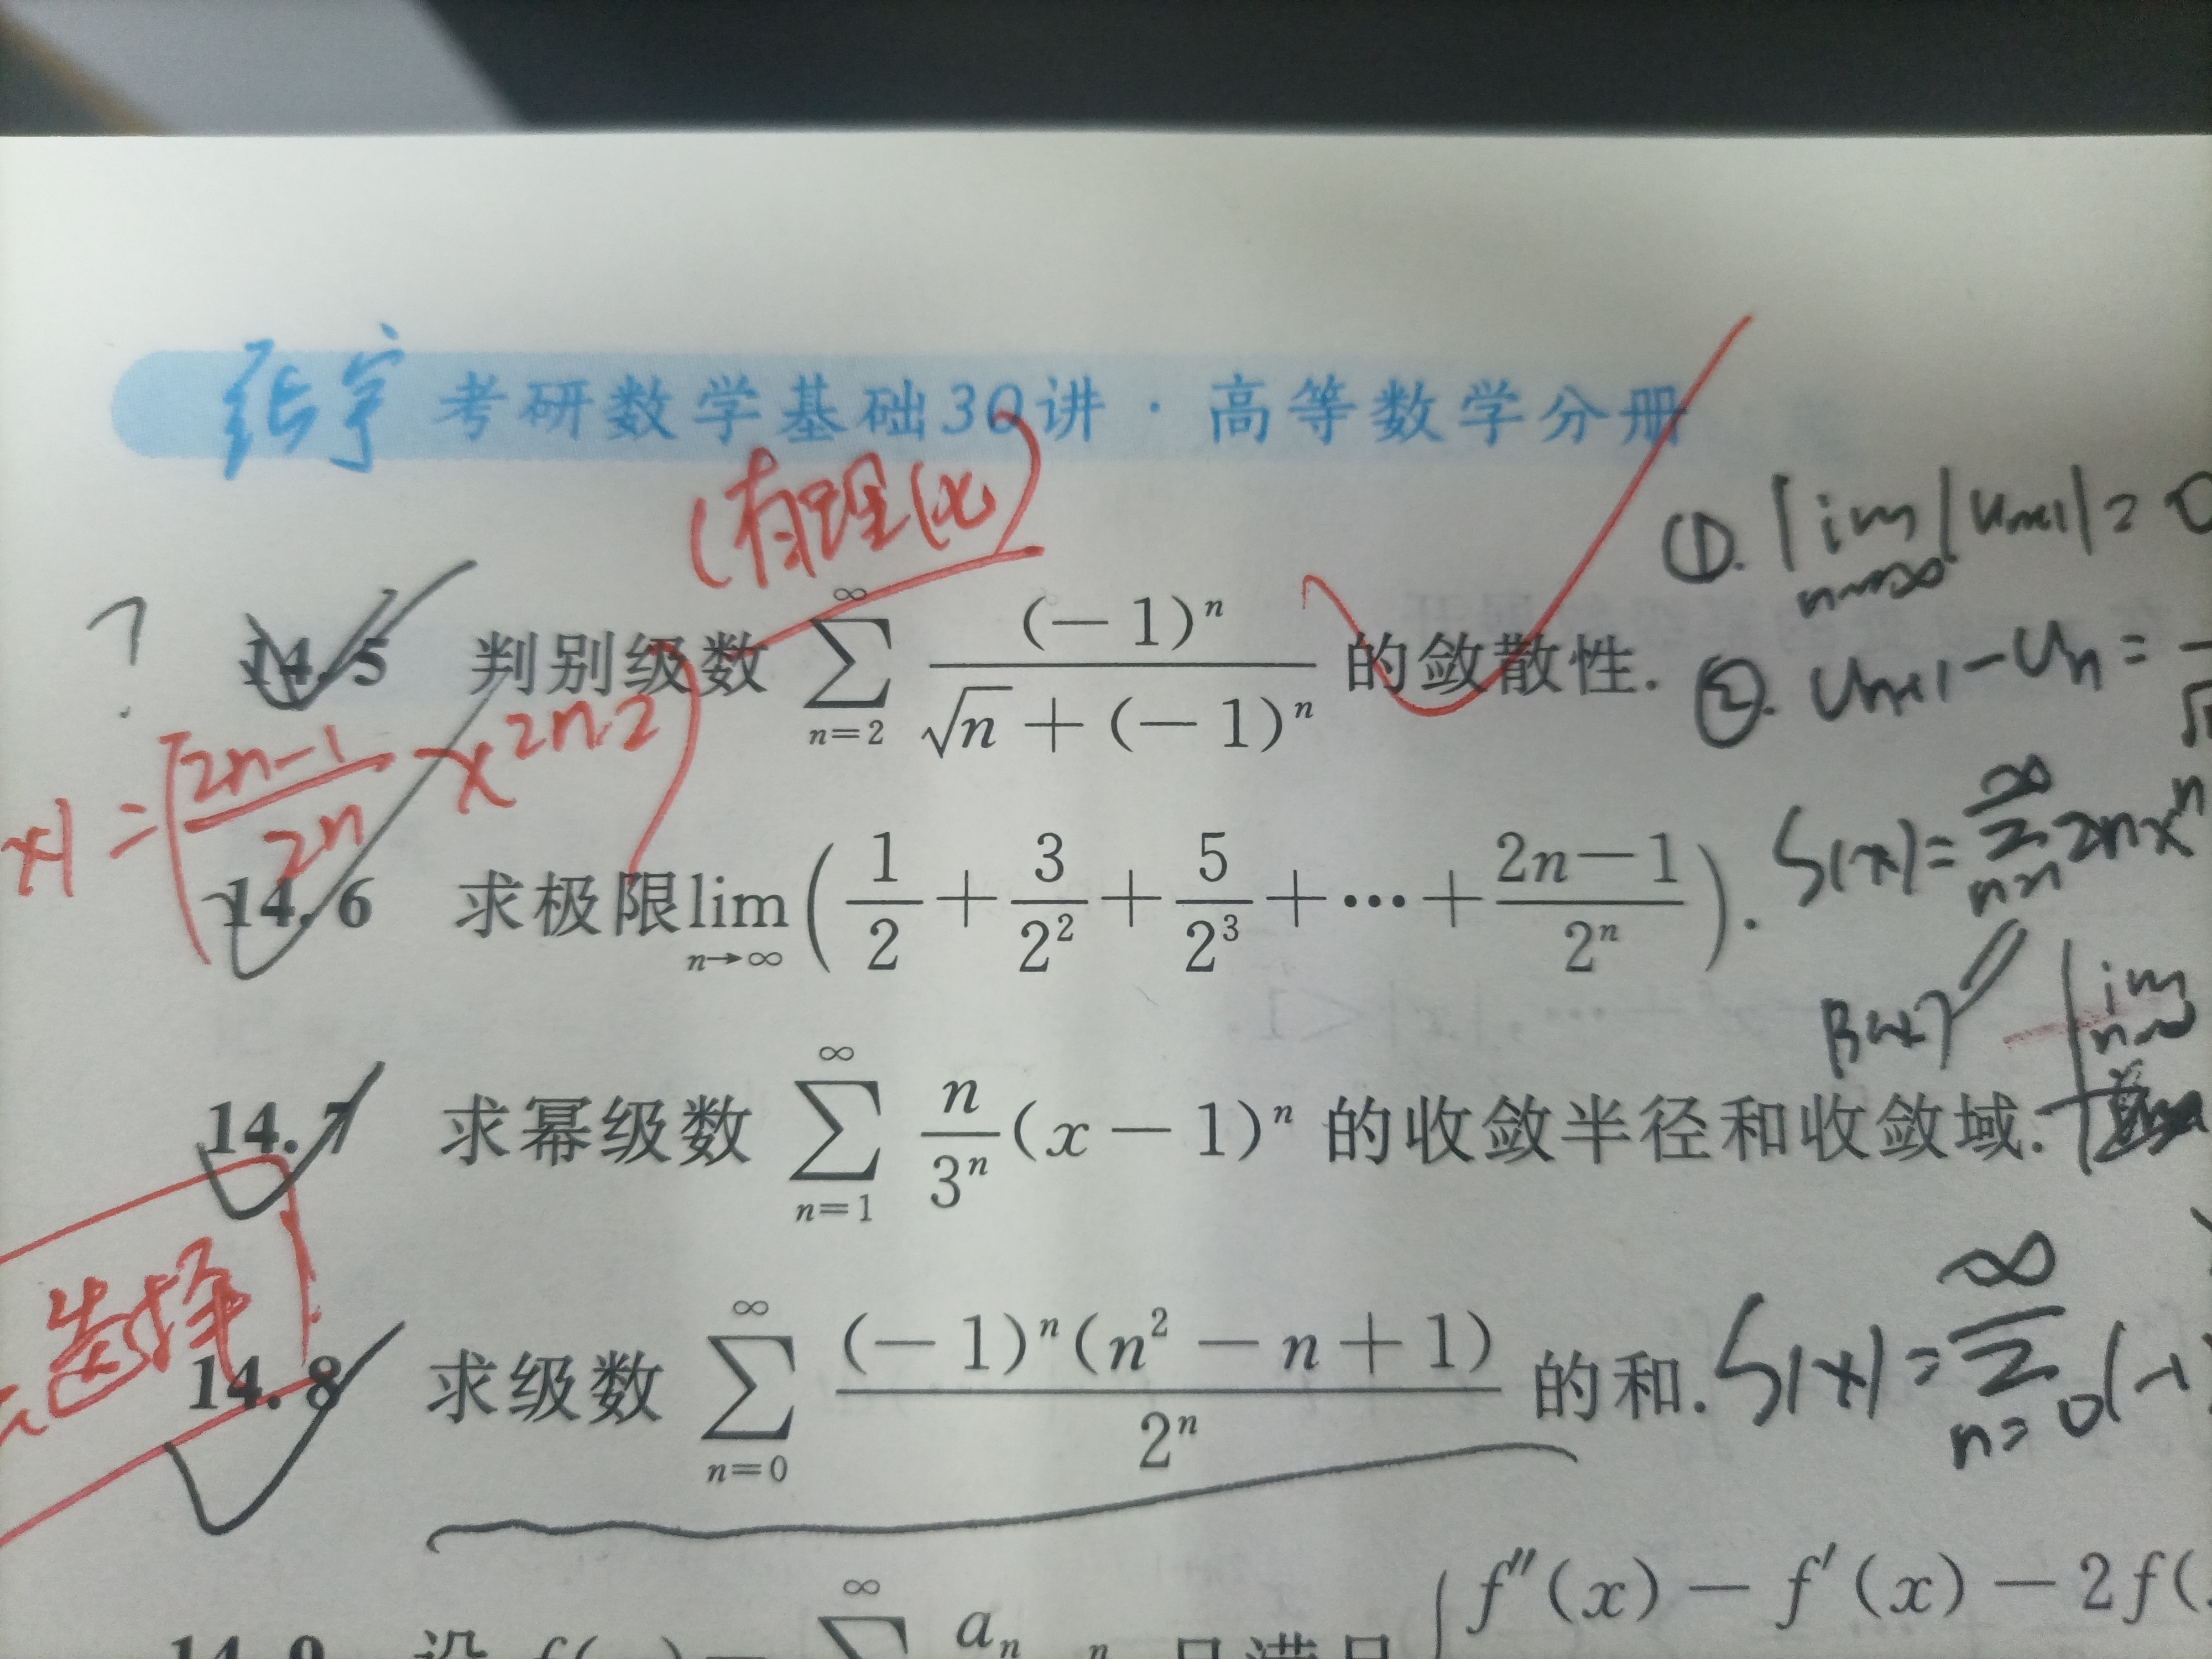 张宇 考研数学基础30讲·高等数学分册
(有理化)
① lim n→∞ |uₙ₊₁| = 0
? 14.5 判别级数 ∑_{n=2}^{∞} (-1)ⁿ / (√n + (-1)ⁿ) 的敛散性.
② uₙ₊₁ - uₙ =
x) = (2n-1)/2n x^{2n-2}
14.6 求极限 lim_{n→∞} (1/2 + 3/2² + 5/2³ + ⋯ + (2n-1)/2ⁿ).
S(x) = ∑^{∞} 2nxⁿ
lim
14.7 求幂级数 ∑_{n=1}^{∞} n/3ⁿ (x-1)ⁿ 的收敛半径和收敛域.
选择
14.8 求级数 ∑_{n=0}^{∞} (-1)ⁿ(n²-n+1)/2ⁿ 的和.
S(x) = ∑_{n=0}^{∞} (-1)
f″(x) - f′(x) - 2f(
14.9 设 f( ) = ∑^{∞} aₙ n 且满足